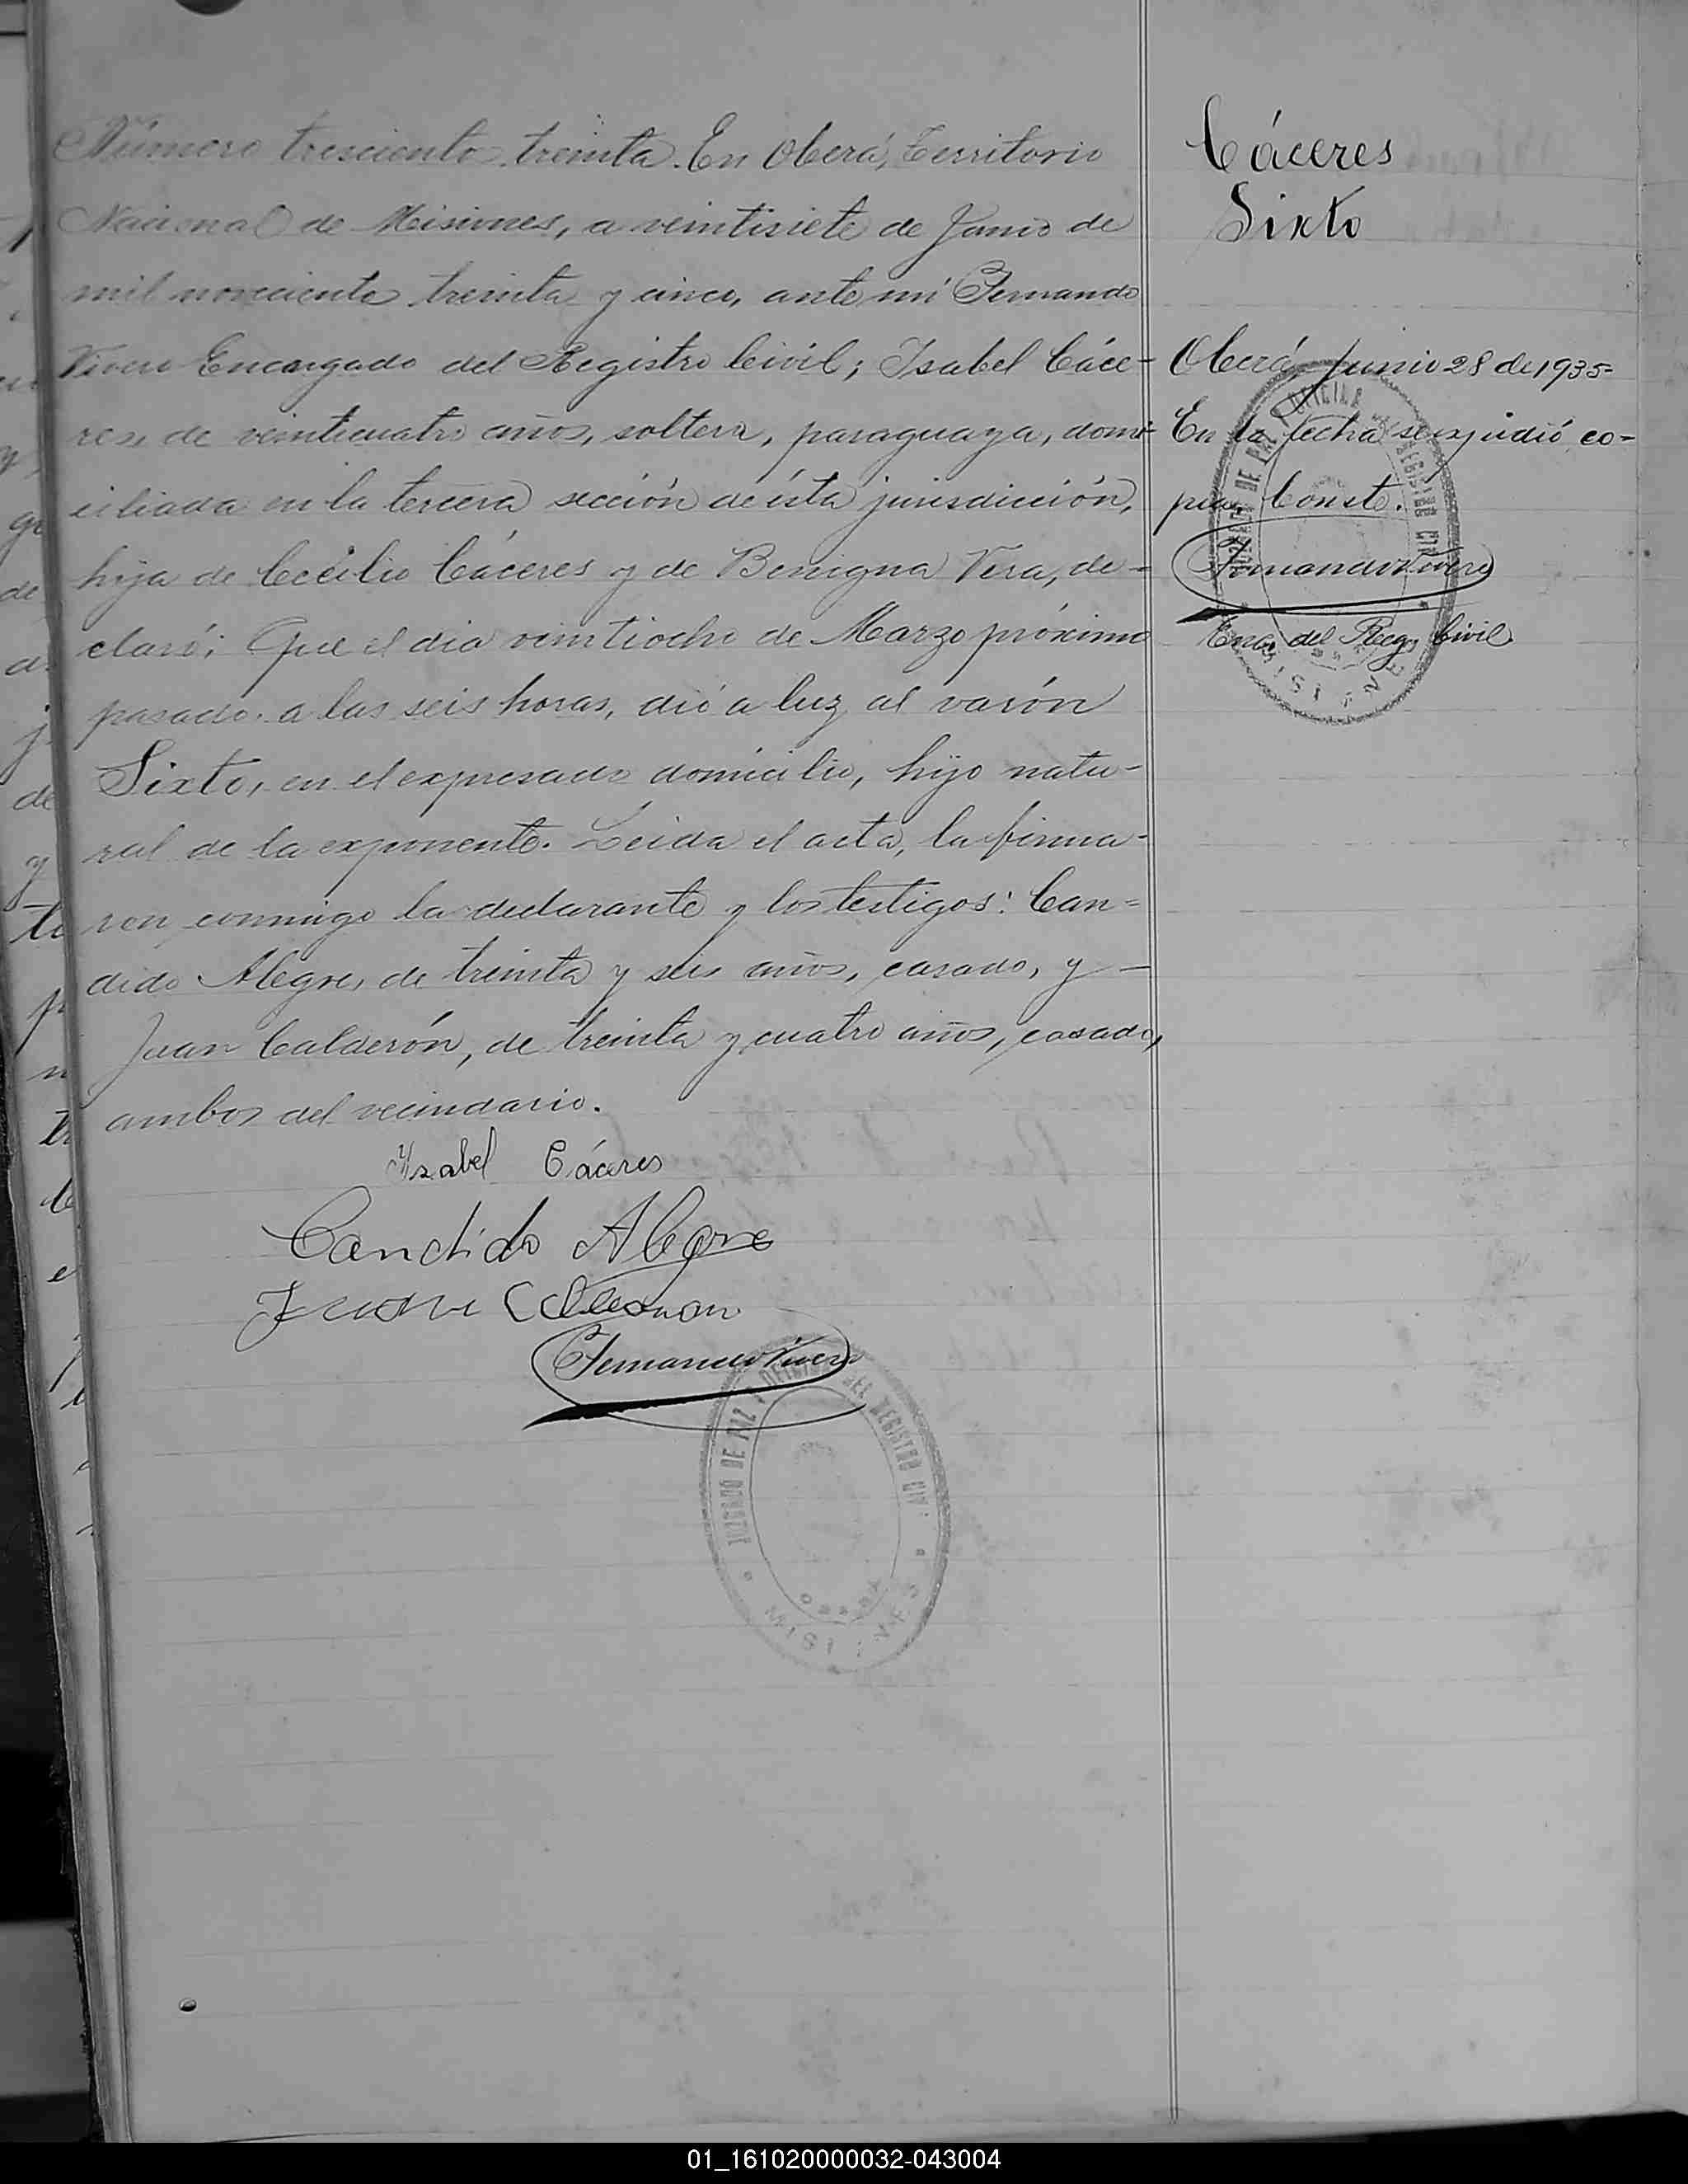 Número tresciento treinta. En Oberá, Territorio
Nacional de Misiones, a veintisiete de Junio de
mil noveciento treinta y cinco, ante mí Fernando
Vivero Encargado del Registro Civil; Isabel Cáce-
res, de veinticuatro años, soltera, paraguaya, domi-
ciliada en la tercera sección de ésta jurisdicción,
hija de Cecilio Cáceres y de Benigna Vera, de-
claró: Que el dia veintiocho de Marzo próximo
pasado. a las seis horas, dió a luz al varón
Sixto, en el expresado domicilio, hijo natu-
ral de la exponente. Leida el acta, la firma-
ron conmigo la declarante y los testigos: Can-
dido Alegre, de treinta y seis años, casado, y
Juan Calderón, de treinta y cuatro años, casado,
ambos del vecindario.
Isabel Cáceres
Candido Alegre
Juan
Fernando Vivero
JUZGADO DE PAZ Y OFICINA DEL REGISTRO CIVIL
MISIONES
Cáceres
Sixto
Oberá, Junio 28 de 1935-
En la fecha se expidió co-
pia, Conste.
Fernando Vivero
Enc. del Reg. Civil
JUZGADO DE PAZ Y OFICINA DEL REGISTRO CIVIL
MISIONES
01_161020000032-043004